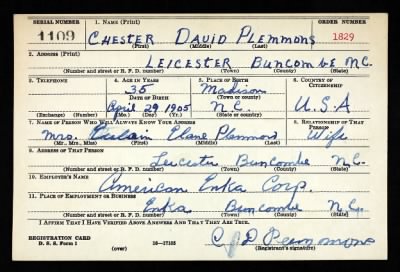 SERIAL NUMBER 1. NAME (Print)
1109 CHESTER DAVID PLEMMONS 1829
(First) (Middle) (Last)
2. ADDRESS (Print)
LEICESTER BUNCOMBE N.C.
(Number and street or R. F. D. number) (Town) (County) (State)
3. TELEPHONE 4. AGE IN YEARS 5. PLACE OF BIRTH 6. COUNTRY OF CITIZENSHIP
35 Madison
DATE OF BIRTH (Town or county)
April 29 1905 N.C. U.S.A
(Exchange) (Number) (Mo.) (Day) (Yr.) (State or country)
7. NAME OF PERSON WHO WILL ALWAYS KNOW YOUR ADDRESS 8. RELATIONSHIP OF THAT PERSON
Mrs. Plemmons Wife
(Mr., Mrs., Miss) (First) (Middle) (Last)
9. ADDRESS OF THAT PERSON
Leicester Buncombe N.C.
(Number and street or R. F. D. number) (Town) (County) (State)
10. EMPLOYER'S NAME
American Enka Corp.
11. PLACE OF EMPLOYMENT OR BUSINESS
Enka Buncombe N.C.
(Number and street or R. F. D. number) (Town) (County) (State)
I AFFIRM THAT I HAVE VERIFIED ABOVE ANSWERS AND THAT THEY ARE TRUE.
REGISTRATION CARD
D. S. S. Form 1 (over) 16—17105 C D Plemmons
(Registrant's signature)